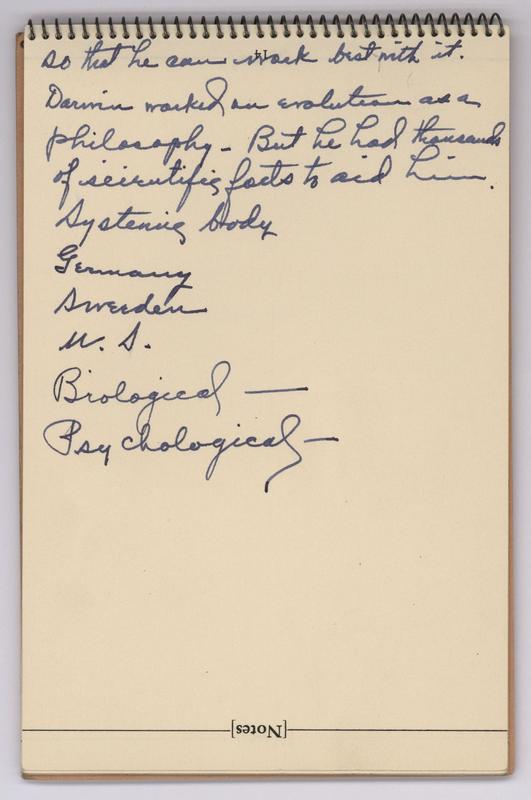 14
so that he can work best with it.
Darwin worked on evolution as a
philosophy – But he had thousands
of scientific facts to aid him.
Systemic body
Germany
Sweeden
U. S.
Biological —
Psychological —
[Notes]